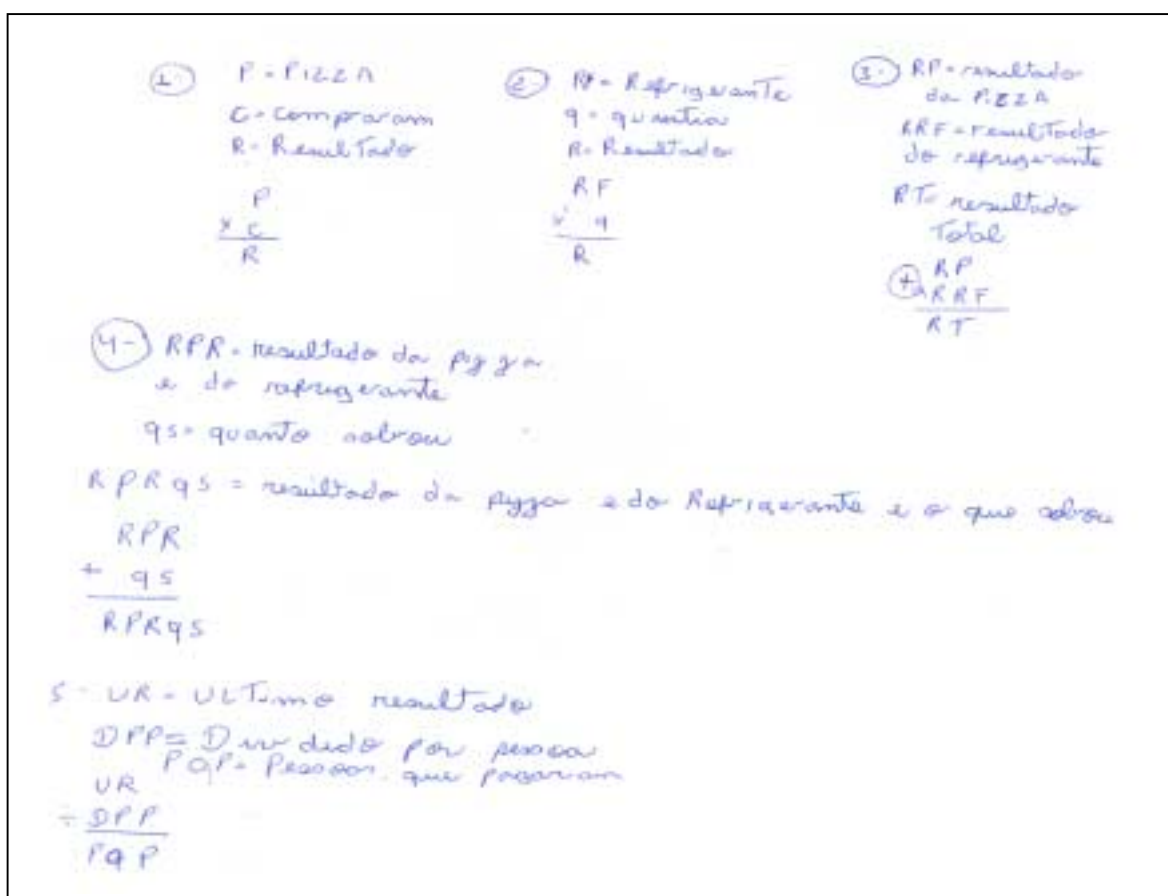 1- P = PIZZA
C = Compraram
R = Resultado
P
x C
R
2- RF = Refrigerante
q = quantia
R = Resultado
RF
x q
R
3- RP = resultado
da PIZZA
RRF = resultado
do refrigerante
RT = resultado
Total
RP
+ RRF
RT
4- RPR = resultado da pizza
e do refrigerante
qs = quanto sobrou
RPRqs = resultado da pizza e do Refrigerante e o que sobrou
RPR
+ qs
RPRqs
5- UR = ULTimo resultado
DPP = Dividido por pessoa
PQP = Pessoas que pagaram
UR
÷ DPP
PQP